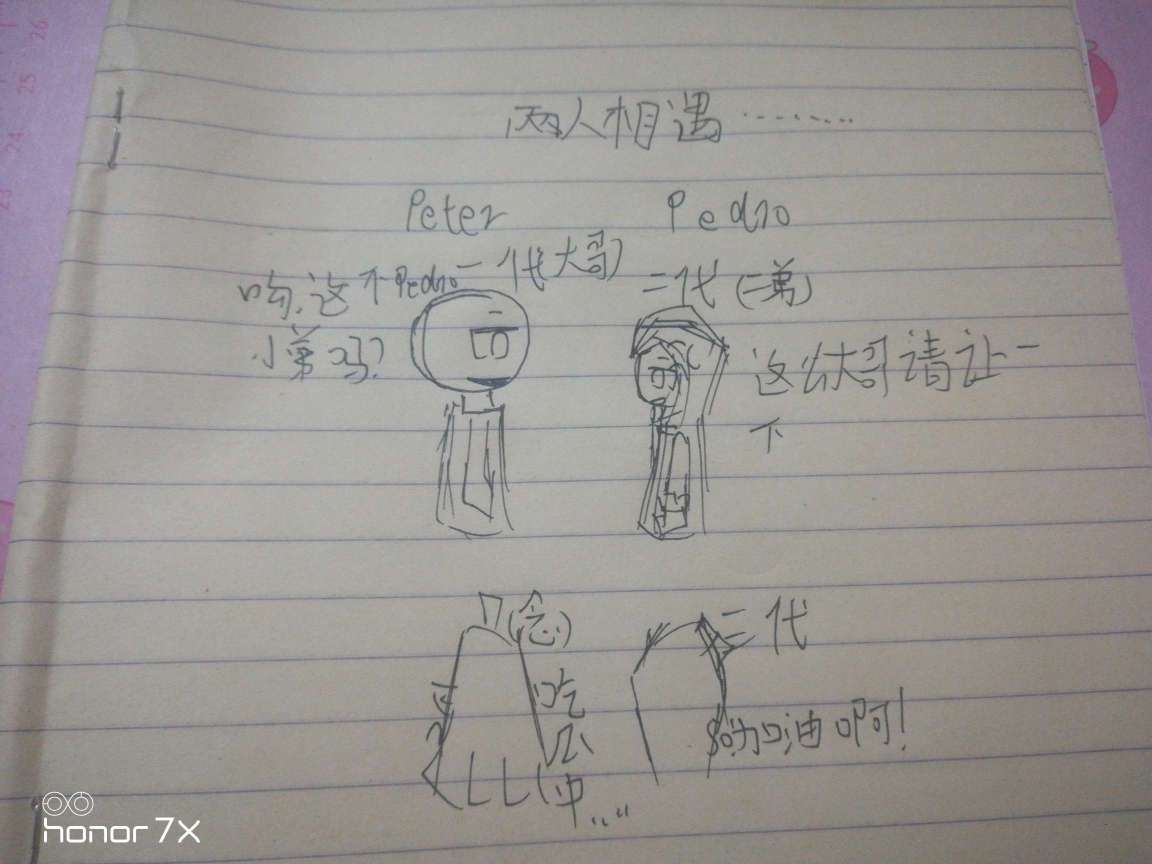 两人相遇........
Peter
Pedro
一代(大哥)
哟,这不Pedro
小弟吗?
二代(二弟)
这位大哥请让一
下
(念)
吃
瓜
中....
三代
加油啊!
honor 7X
26
25
24
23